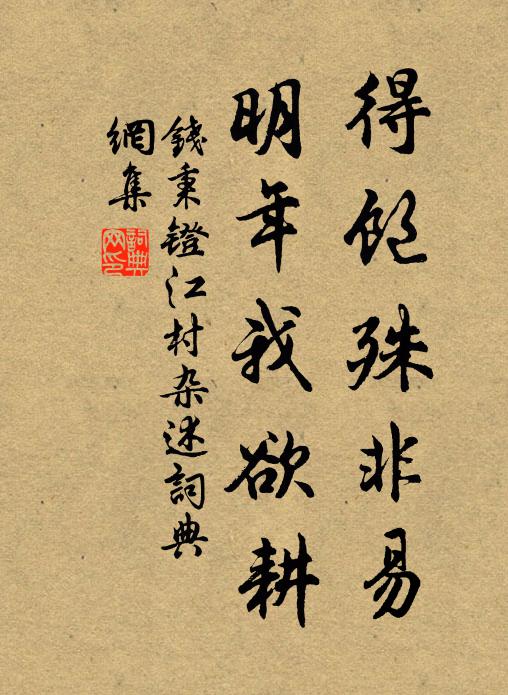 得飽殊非易
明年我欲耕
錢秉镫江村杂述詞典
網集
詞典
网印